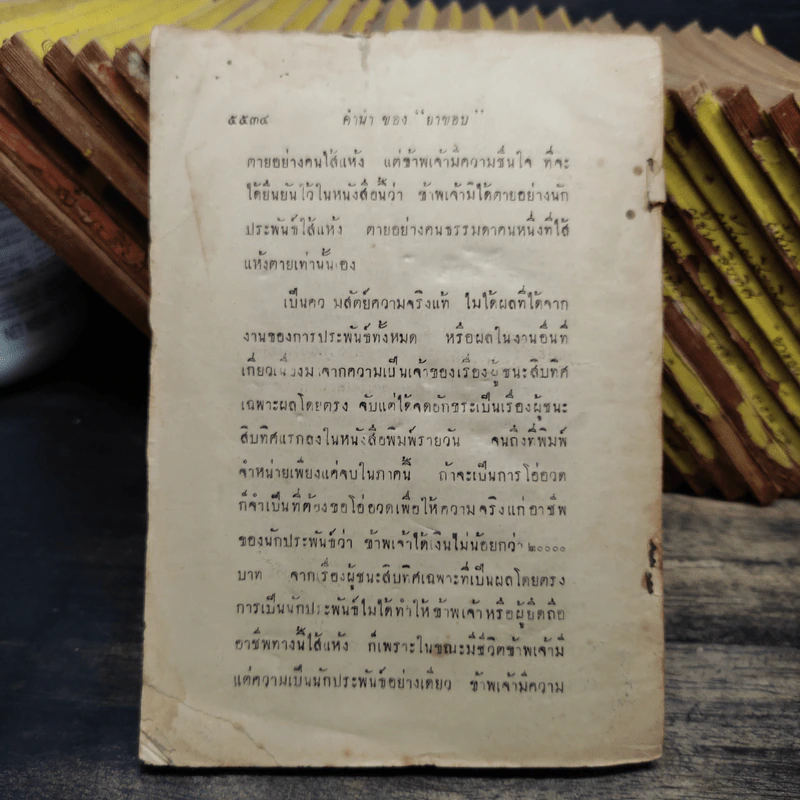 ๕๕๓๔ คำนำ ของ "ยาขอบ"
ตายอย่างคนไส้แห้ง แต่ข้าพเจ้ามีความชื่นใจ ที่จะ
ได้ยืนยันไว้ในหนังสือนี้ว่า ข้าพเจ้ามิได้ตายอย่างนัก
ประพันธ์ไส้แห้ง ตายอย่างคนธรรมดาคนหนึ่งที่ไส้
แห้งตายเท่านั้นเอง
เป็นความสัตย์ความจริงแท้ ไม่ได้ผลที่ได้จาก
งานของการประพันธ์ทั้งหมด หรือผลในงานอื่นที่
เกี่ยวเนื่องมาจากความเป็นเจ้าของเรื่องผู้ชนะสิบทิศ
เฉพาะผลโดยตรง จับแต่ได้จดอักขระเป็นเรื่องผู้ชนะ
สิบทิศแรกลงในหนังสือพิมพ์รายวัน จนถึงที่พิมพ์
จำหน่ายเพียงแค่จบในภาคนี้ ถ้าจะเป็นการโอ่อวด
ก็จำเป็นที่ต้องขอโอ่อวดเพื่อให้ความจริงแก่อาชีพ
ของนักประพันธ์ว่า ข้าพเจ้าได้เงินไม่น้อยกว่า ๒๐๐๐๐
บาท จากเรื่องผู้ชนะสิบทิศเฉพาะที่เป็นผลโดยตรง
การเป็นนักประพันธ์ไม่ได้ทำให้ข้าพเจ้าหรือผู้ยึดถือ
อาชีพทางนี้ไส้แห้ง ก็เพราะในขณะมีชีวิตข้าพเจ้ามี
แต่ความเป็นนักประพันธ์อย่างเดียว ข้าพเจ้ามีความ